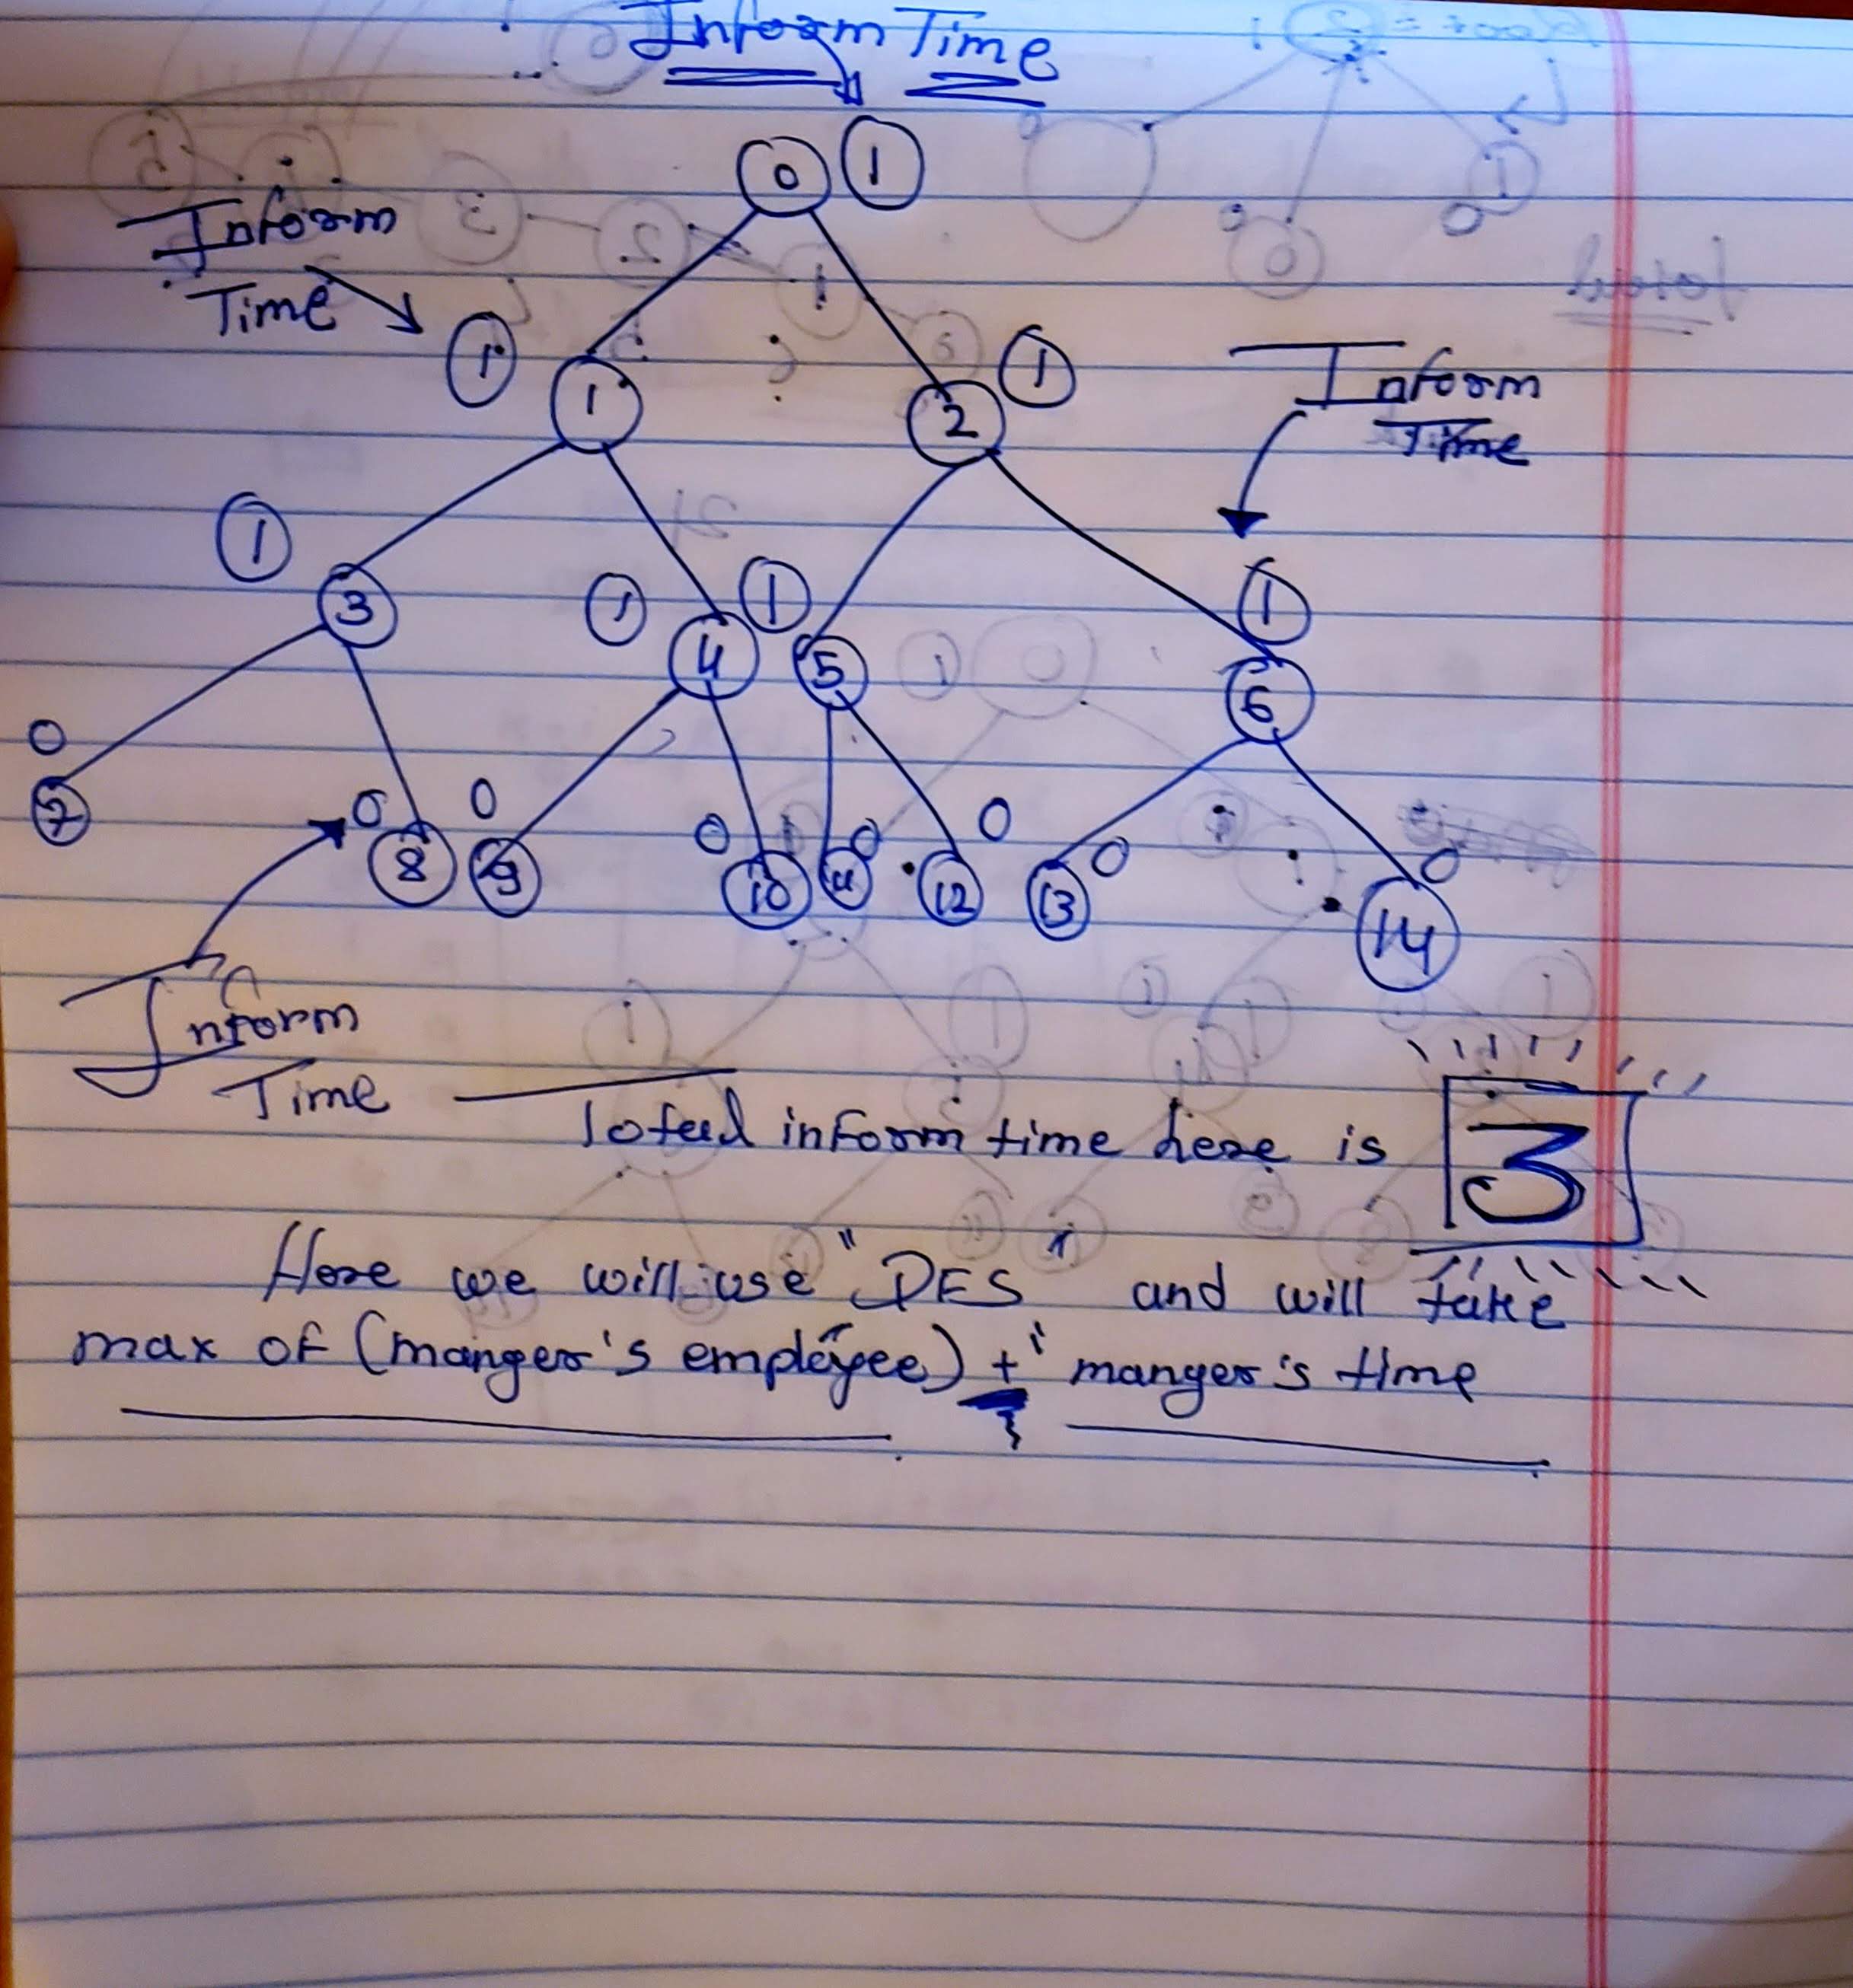 Inform Time
0 1
Inform
Time
1 1 2 1
Inform
Time
1 3 1 4 1 5 1 6
0 7 0 8 0 9 0 10 11 0 12 0 13 0 14 0
Inform
Time
Total inform time here is 3
Here we will use "DFS" and will take
max of (manger's employee) + manger's time